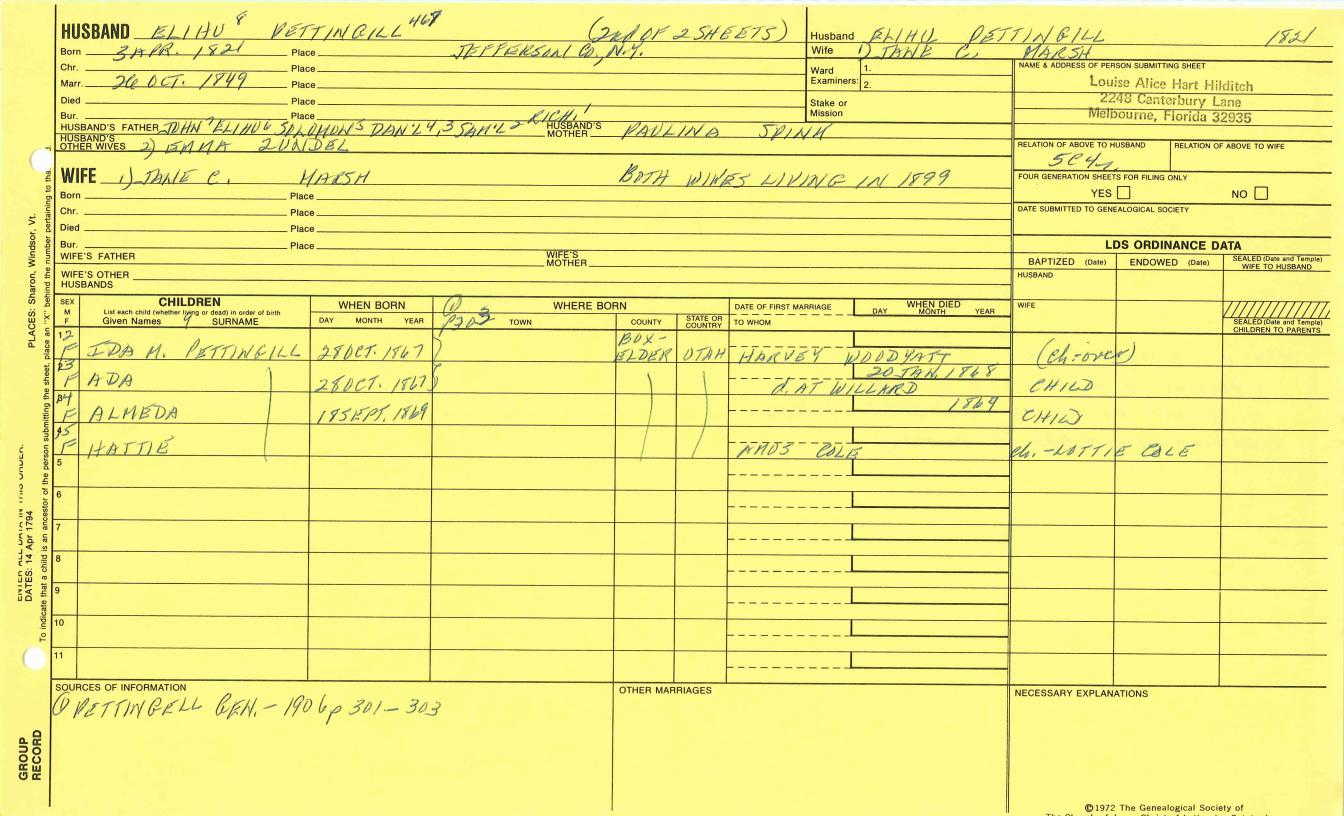 HUSBAND ELIHU 8 PETTINGILL 468 (2nd OF 2 SHEETS)
Born 3 APR. 1821 Place JEFFERSON CO, N.Y.
Chr. Place
Marr. 26 OCT. 1849 Place
Died Place
Bur. Place
HUSBAND'S FATHER JOHN 7 ELIHU 6 SOLOMON 5 DAN'L 4,3 SAM'L 2 RICH. 1 HUSBAND'S MOTHER PAULINA SPINK
HUSBAND'S OTHER WIVES 2) EMMA ZUNDEL
Husband ELIHU PETTINGILL 1821
Wife 1) JANE C. MARSH
Ward Examiners: 1.
2.
Stake or Mission
NAME & ADDRESS OF PERSON SUBMITTING SHEET
Louise Alice Hart Hilditch
2248 Canterbury Lane
Melbourne, Florida 32935
RELATION OF ABOVE TO HUSBAND RELATION OF ABOVE TO WIFE
5C4r
FOUR GENERATION SHEETS FOR FILING ONLY
YES NO
DATE SUBMITTED TO GENEALOGICAL SOCIETY
WIFE 1) JANE C. MARSH BOTH WIVES LIVING IN 1899
Born Place
Chr. Place
Died Place
Bur. Place
WIFE'S FATHER WIFE'S MOTHER
WIFE'S OTHER HUSBANDS
LDS ORDINANCE DATA
BAPTIZED (Date) ENDOWED (Date) SEALED (Date and Temple) WIFE TO HUSBAND
HUSBAND
WIFE
SEALED (Date and Temple) CHILDREN TO PARENTS
SEX M F CHILDREN
List each child (whether living or dead) in order of birth
Given Names 9 SURNAME
WHEN BORN
DAY MONTH YEAR
① P303 WHERE BORN
TOWN COUNTY STATE OR COUNTRY
DATE OF FIRST MARRIAGE
TO WHOM
WHEN DIED
DAY MONTH YEAR
12 F IDA M. PETTINGILL 28 OCT. 1867 BOX-ELDER UTAH HARVEY WOODYATT (ch-over)
13 F ADA 28 OCT. 1867 d. AT WILLARD 20 JAN. 1868 CHILD
14 F ALMEDA 18 SEPT. 1869 1869 CHILD
15 F HATTIE AMOS COLE ch. - LOTTIE COLE
5
6
7
8
9
10
11
SOURCES OF INFORMATION
① PETTINGELL GEN. - 1906 p 301 - 303
OTHER MARRIAGES
NECESSARY EXPLANATIONS
©1972 The Genealogical Society of
PLACES: Sharon, Windsor, Vt.
ENTER ALL DATA IN THIS ORDER:
DATES: 14 Apr 1794
To indicate that a child is an ancestor of the person submitting the sheet, place an "X" behind the number pertaining to tha
GROUP RECORD